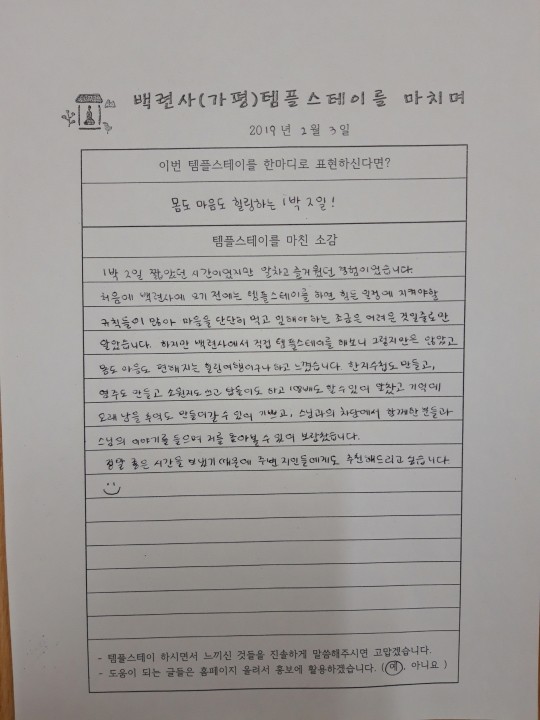 백련사(가평)템플스테이를 마치며
2019년 2월 3일
이번 템플스테이를 한마디로 표현하신다면?
몸도 마음도 힐링하는 1박 2일!
템플스테이를 마친 소감
1박 2일 짧았던 시간이였지만 알차고 즐거웠던 경험이었습니다.
처음에 백련사에 오기 전에는 템플스테이를 하면 힘든 일정에 지켜야할
규칙들이 많아 마음을 단단히 먹고 임해야 하는 조금은 어려운 것일줄로만
알았습니다. 하지만 백련사에서 직접 템플스테이를 해보니 그렇지만은 않았고
몸도 마음도 편해지는 힐링여행이구나 하고 느꼈습니다. 한지수첩도 만들고,
염주도 만들고 소원지도 쓰고 탑돌이도 하고 108배도 할 수 있어 알찼고 기억에
오래 남을 추억도 만들어갈 수 있어 기쁘고, 스님과의 차담에서 함께한 분들과
스님의 이야기를 들으며 저를 돌아볼 수 있어 보람찼습니다.
정말 좋은 시간을 보냈기 때문에 주변 지인들에게도 추천해드리고 싶습니다
- 템플스테이 하시면서 느끼신 것들을 진솔하게 말씀해주시면 고맙겠습니다.
- 도움이 되는 글들은 홈페이지 올려서 홍보에 활용하겠습니다. ( 예, 아니요 )